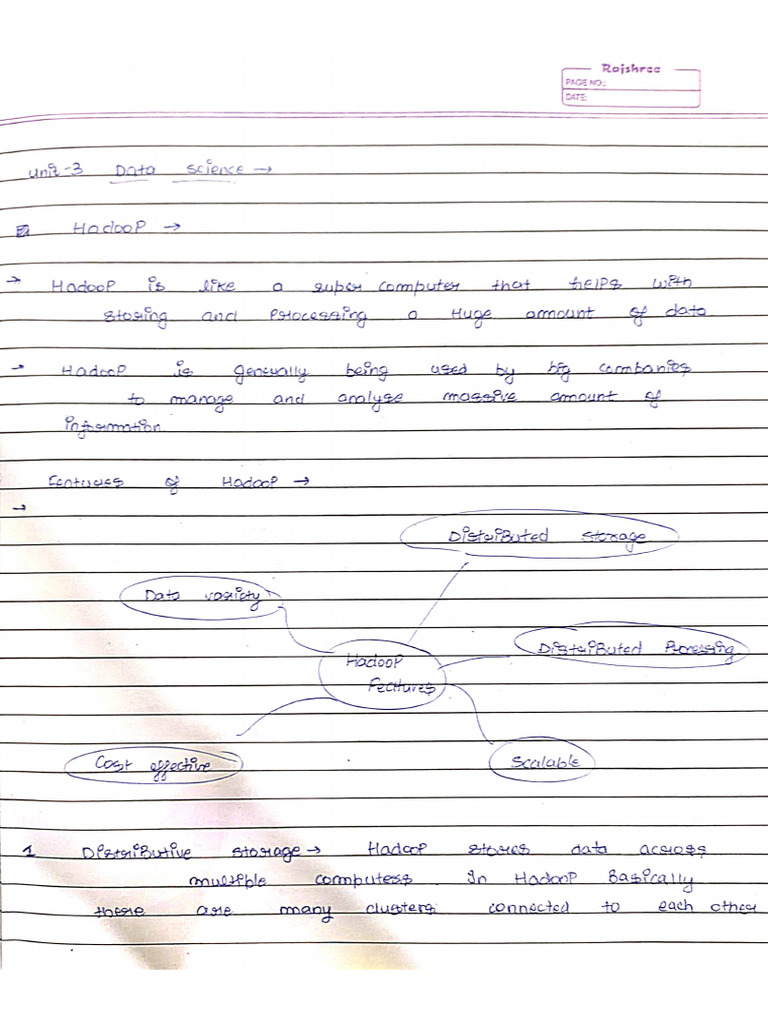 Rajshree
PAGE NO.:
DATE:
Unit-3 Data Science →
Hadoop →
→ Hadoop is like a super computer that helps with
storing and Processing a Huge amount of data
→ Hadoop is generally being used by big companies
to manage and analyse massive amount of
information.
Features of Hadoop →
→
Distributed Storage
Data variety
Distributed Processing
Hadoop
Features
Cost effective
Scalable
1 Distributive storage → Hadoop stores data across
multiple computers In Hadoop Basically
there are many clusters connected to each other